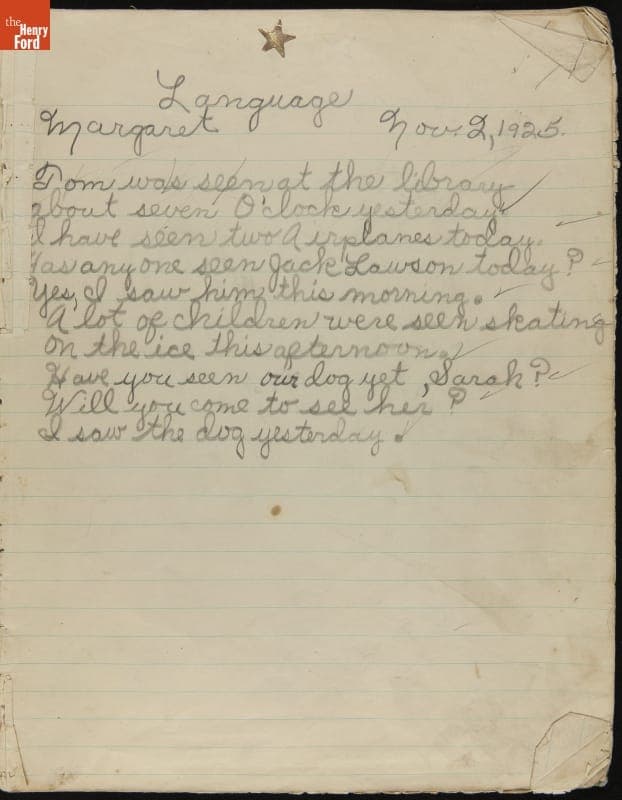 the
Henry
Ford
Language
Margaret Nov. 2, 1925.
Tom was seen at the library
about seven O'clock yesterday.
I have seen two Airplanes today.
Has anyone seen Jack Lawson today?
Yes, I saw him this morning.
A lot of children were seen skating
on the ice this afternoon.
Have you seen our dog yet, Sarah?
Will you come to see her?
I saw the dog yesterday.